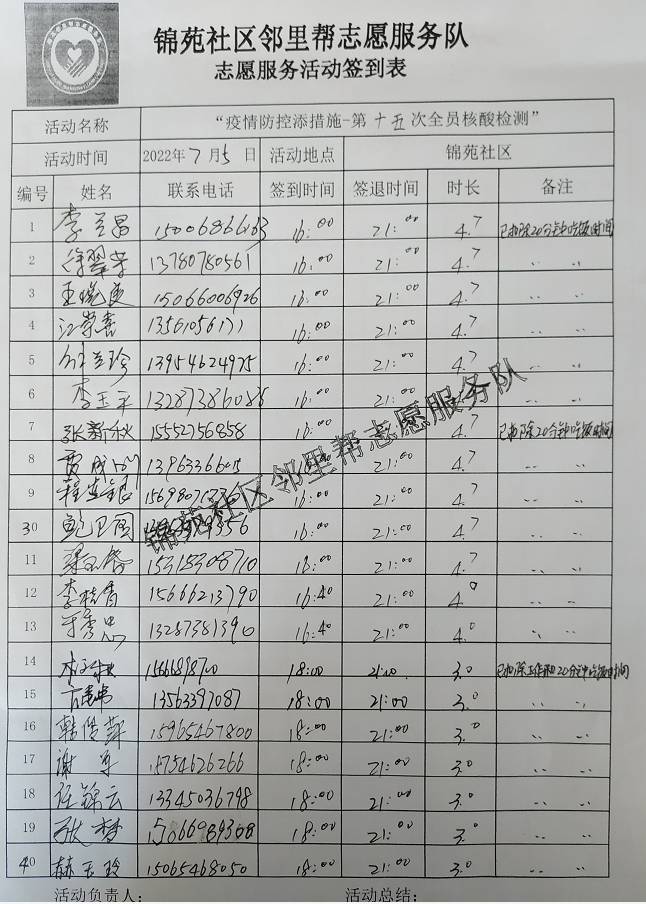 锦苑社区邻里帮志愿服务队
志愿服务活动签到表
活动名称 “疫情防控添措施-第十五次全员核酸检测”
活动时间 2022年7月5日 活动地点 锦苑社区
编号 姓名 联系电话 签到时间 签退时间 时长 备注
1 李兰昌 16:00 21:00 4.7 已扣除20分钟吃饭时间
2 徐翠芳 13780780561 16:00 21:00 4.7 〃 〃
3 15066006926 16:00 21:00 4.7 〃 〃
4 江崇喜 16:00 21:00 4.7 〃 〃
5 13954624975 16:00 21:00 4.7 〃 〃
6 李玉平 16:00 21:00 4.7 〃 〃
7 张新秋 15552756858 16:00 21:00 4.7 已扣除20分钟吃饭时间
8 16:00 21:00 4.7 〃 〃
9 16:00 21:00 4.7 〃 〃
30 鲍卫国 16:00 21:00 4.7 〃 〃
11 15318308710 16:00 21:00 4.7 〃 〃
12 李桂香 15666213790 16:40 21:00 4.0 〃 〃
13 13287381390 16:40 21:00 4.0 〃 〃
14 18:00 21:00 3.0 20分钟吃饭时间
15 13563397087 18:00 21:00 3.0 〃 〃
16 韩俊萍 15965467800 18:00 21:00 3.0 〃 〃
17 谢军 18754626266 18:00 21:00 3.0 〃 〃
18 任锦云 13345036798 18:00 21:00 3.0 〃 〃
19 张梅 18:00 21:00 3.0 〃 〃
40 赫玉玲 15065468050 18:00 21:00 3.0 〃 〃
活动负责人： 活动总结：
锦苑社区邻里帮志愿服务队